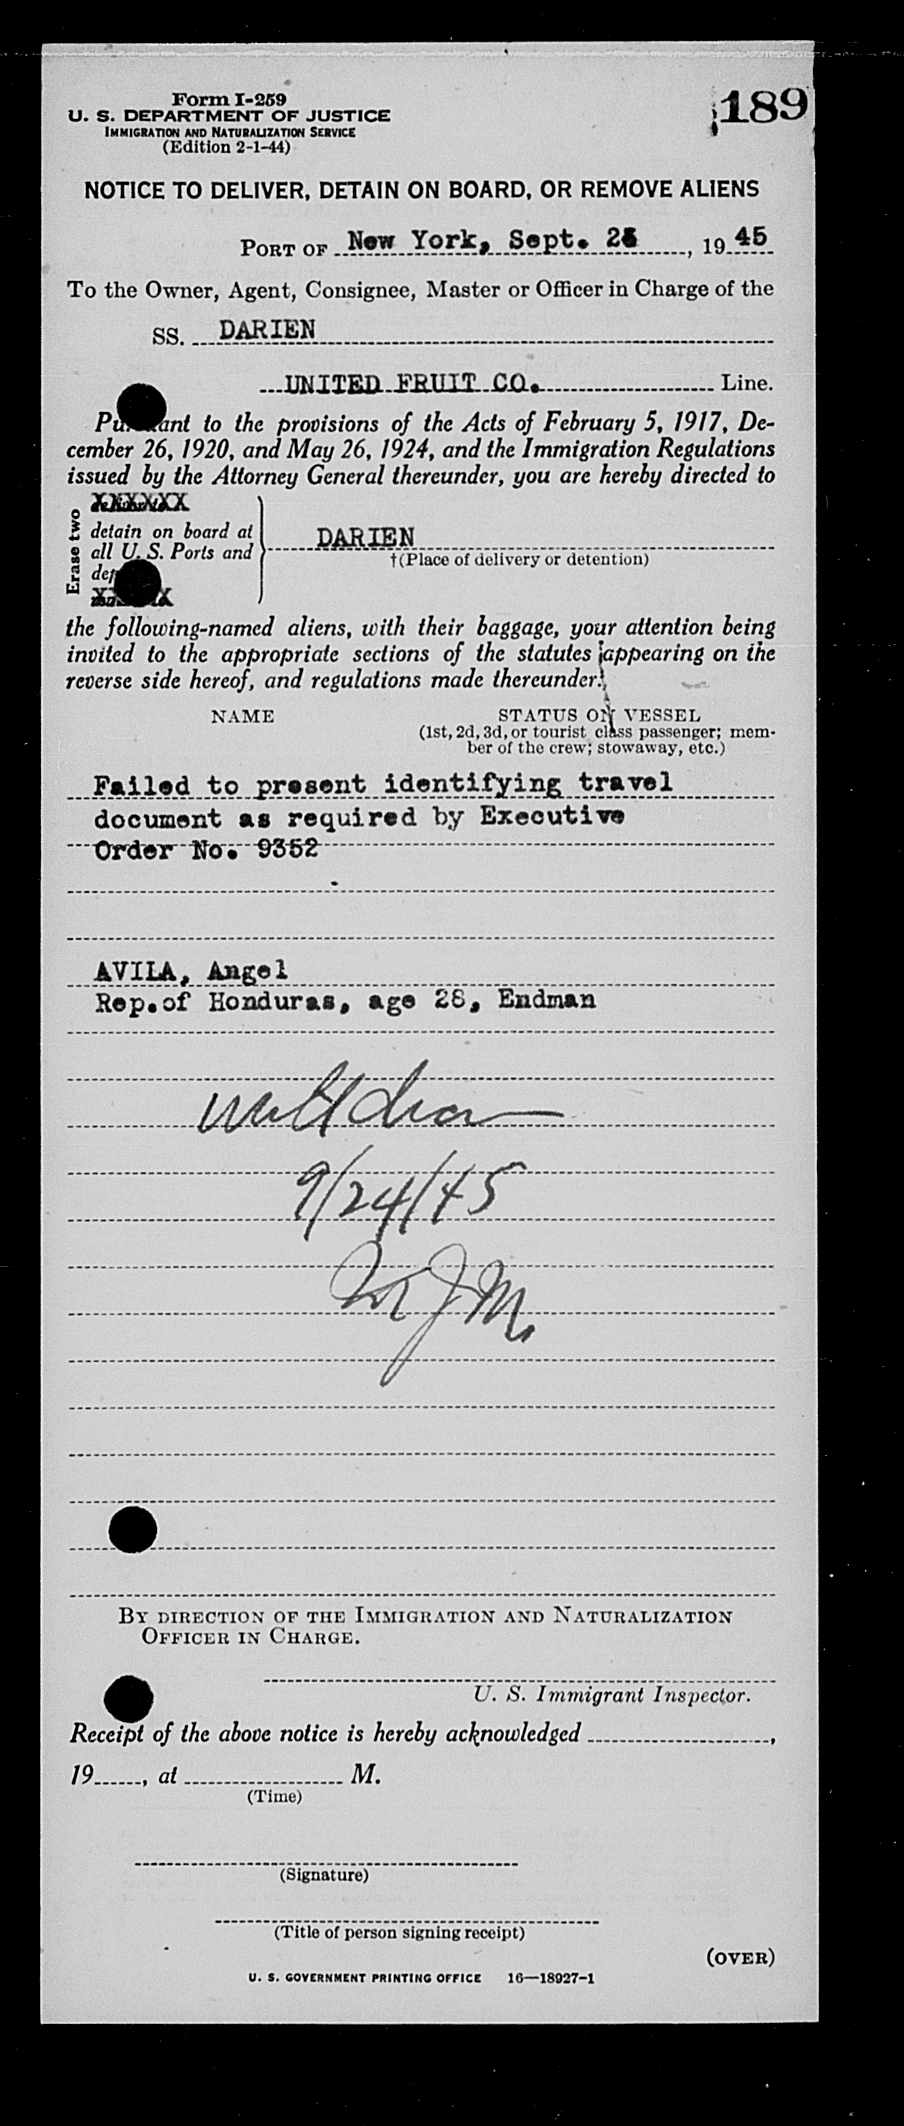 Form I-259
189
U. S. DEPARTMENT OF JUSTICE
IMMIGRATION AND NATURALIZATION SERVICE
(Edition 2-1-44)
NOTICE TO DELIVER, DETAIN ON BOARD, OR REMOVE ALIENS
PORT OF New York, Sept. , 19 45
To the Owner, Agent, Consignee, Master or Officer in Charge of the
SS. DARIEN
UNITED FRUIT CO. Line.
to the provisions of the Acts of February 5, 1917, De-
cember 26, 1920, and May 26, 1924, and the Immigration Regulations
issued by the Attorney General thereunder, you are hereby directed to
Erase two
XXXXXX
detain on board at
all U. S. Ports and
DARIEN
†(Place of delivery or detention)
the following-named aliens, with their baggage, your attention being
invited to the appropriate sections of the statutes appearing on the
reverse side hereof, and regulations made thereunder:
NAME
STATUS ON VESSEL
(1st, 2d, 3d, or tourist class passenger; mem-
ber of the crew; stowaway, etc.)
Failed to present identifying travel
document as required by Executive
Order No. 9352
AVILA, Angel
Rep.of Honduras, age 28, Endman
9/24/45
By direction of the Immigration and Naturalization
Officer in Charge.
U. S. Immigrant Inspector.
Receipt of the above notice is hereby acknowledged ,
19 , at M.
(Time)
(Signature)
(Title of person signing receipt)
(OVER)
U. S. GOVERNMENT PRINTING OFFICE 16—18927-1